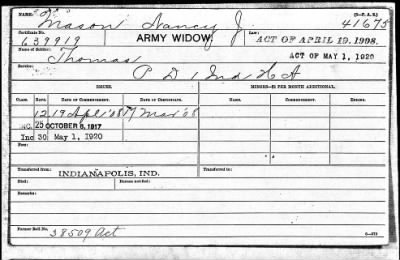 "F" Mason Nancy J. 41675
Certificate No. Law:
639919 ARMY WIDOW ACT OF APRIL 19, 1908.
Thomas ACT OF MAY 1, 1920
Service:
P D 1 Ind H A
ISSUES. MINORS—$2 PER MONTH ADDITIONAL.
CLASS. RATE. DATE OF COMMENCEMENT. DATE OF CERTIFICATE. DATE OF COMMENCEMENT.
12 19 Apl '08 17 Mar '08
INC. 25 OCTOBER 6, 1917
Inc 30 May 1, 1920
Transferred from: Transferred to:
INDIANAPOLIS, IND.
Died:
Remarks:
Former Roll No.
38509 Act